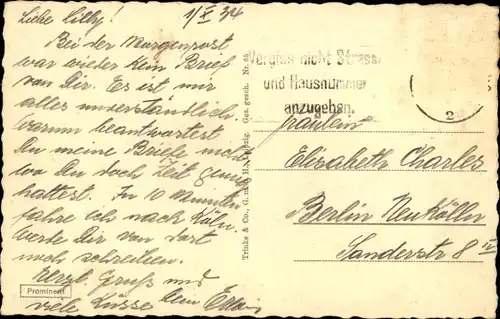 Liebe Lilly! 1/X 34
Bei der Morgenpost
war wieder kein Brief
von Dir. Es ist mir
alles unverständlich.
Warum beantwortest
Du meine Briefe nicht
wo Du doch Zeit genug
hattest. In 10 Minuten
fahre ich nach Köln.
Werde Dir von dort
noch schreiben.
Herzl. Gruß und
viele Küsse Dein
Prominent
Trinks & Co., G. m. b. H., Leipzig. Ges. gesch. Nr.
Vergiss nicht Strasse
und Hausnummer
anzugeben.
2
Fräulein
Elisabeth Charles
Berlin Neukölln
Sanderstr 8 IV